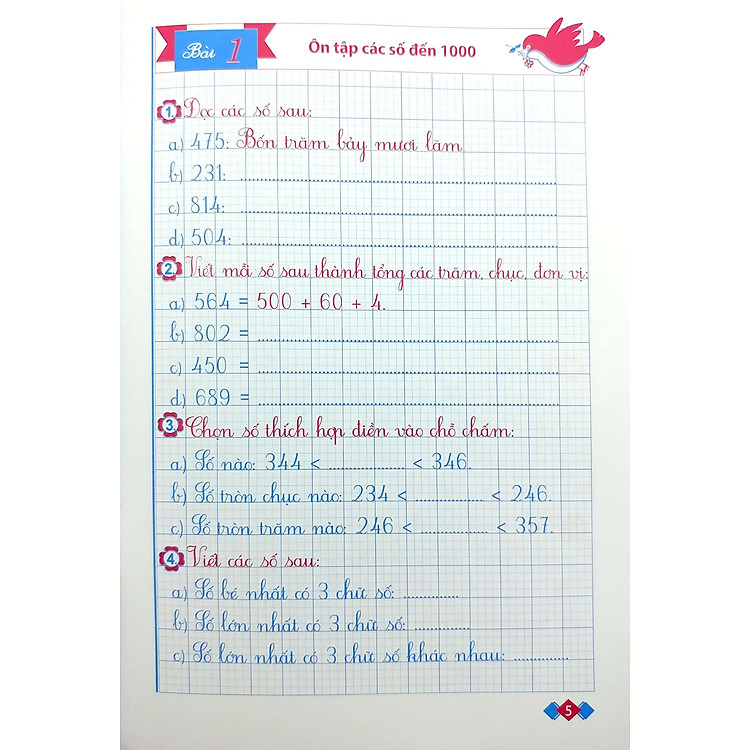 Bài 1
Ôn tập các số đến 1000
1. Đọc các số sau:
a) 475: Bốn trăm bảy mươi lăm
b) 231: ...............
c) 814: ...............
d) 504: ...............
2. Viết mỗi số sau thành tổng các trăm, chục, đơn vị:
a) 564 = 500 + 60 + 4.
b) 802 = ...............
c) 450 = ...............
d) 689 = ...............
3. Chọn số thích hợp điền vào chỗ chấm:
a) Số nào: 344 < ............... < 346.
b) Số tròn chục nào: 234 < ............... < 246.
c) Số tròn trăm nào: 246 < ............... < 357.
4. Viết các số sau:
a) Số bé nhất có 3 chữ số: ...............
b) Số lớn nhất có 3 chữ số: ...............
c) Số lớn nhất có 3 chữ số khác nhau: ...............
5